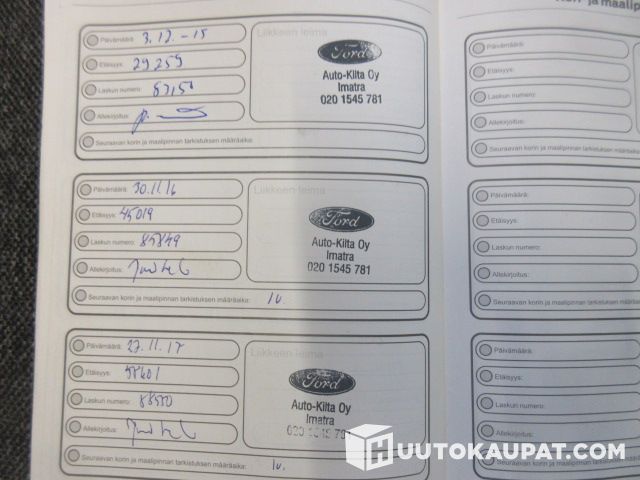 Päivämäärä: 3.12-15
Etäisyys: 29259
Laskun numero:
Allekirjoitus:
Seuraavan korin ja maalipinnan tarkistuksen määräaika:
Liikkeen leima
Ford
Auto-Kilta Oy
Imatra
020 1545 781
Päivämäärä: 30.11.16
Etäisyys: 45019
Laskun numero: 84849
Allekirjoitus:
Seuraavan korin ja maalipinnan tarkistuksen määräaika: 1v.
Liikkeen leima
Ford
Auto-Kilta Oy
Imatra
020 1545 781
Päivämäärä: 27.11.17
Etäisyys: 58601
Laskun numero:
Allekirjoitus:
Seuraavan korin ja maalipinnan tarkistuksen määräaika: 1v.
Liikkeen leima
Ford
Auto-Kilta Oy
Imatra
ja maalip
Päivämäärä:
Etäisyys:
Laskun numero:
Allekirjoitus:
Seuraavan korin ja maalipinnan
Päivämäärä:
Etäisyys:
Laskun numero:
Allekirjoitus:
Seuraavan korin ja maalipinnan
Päivämäärä:
Etäisyys:
Laskun numero:
Allekirjoitus:
HUUTOKAUPAT.COM